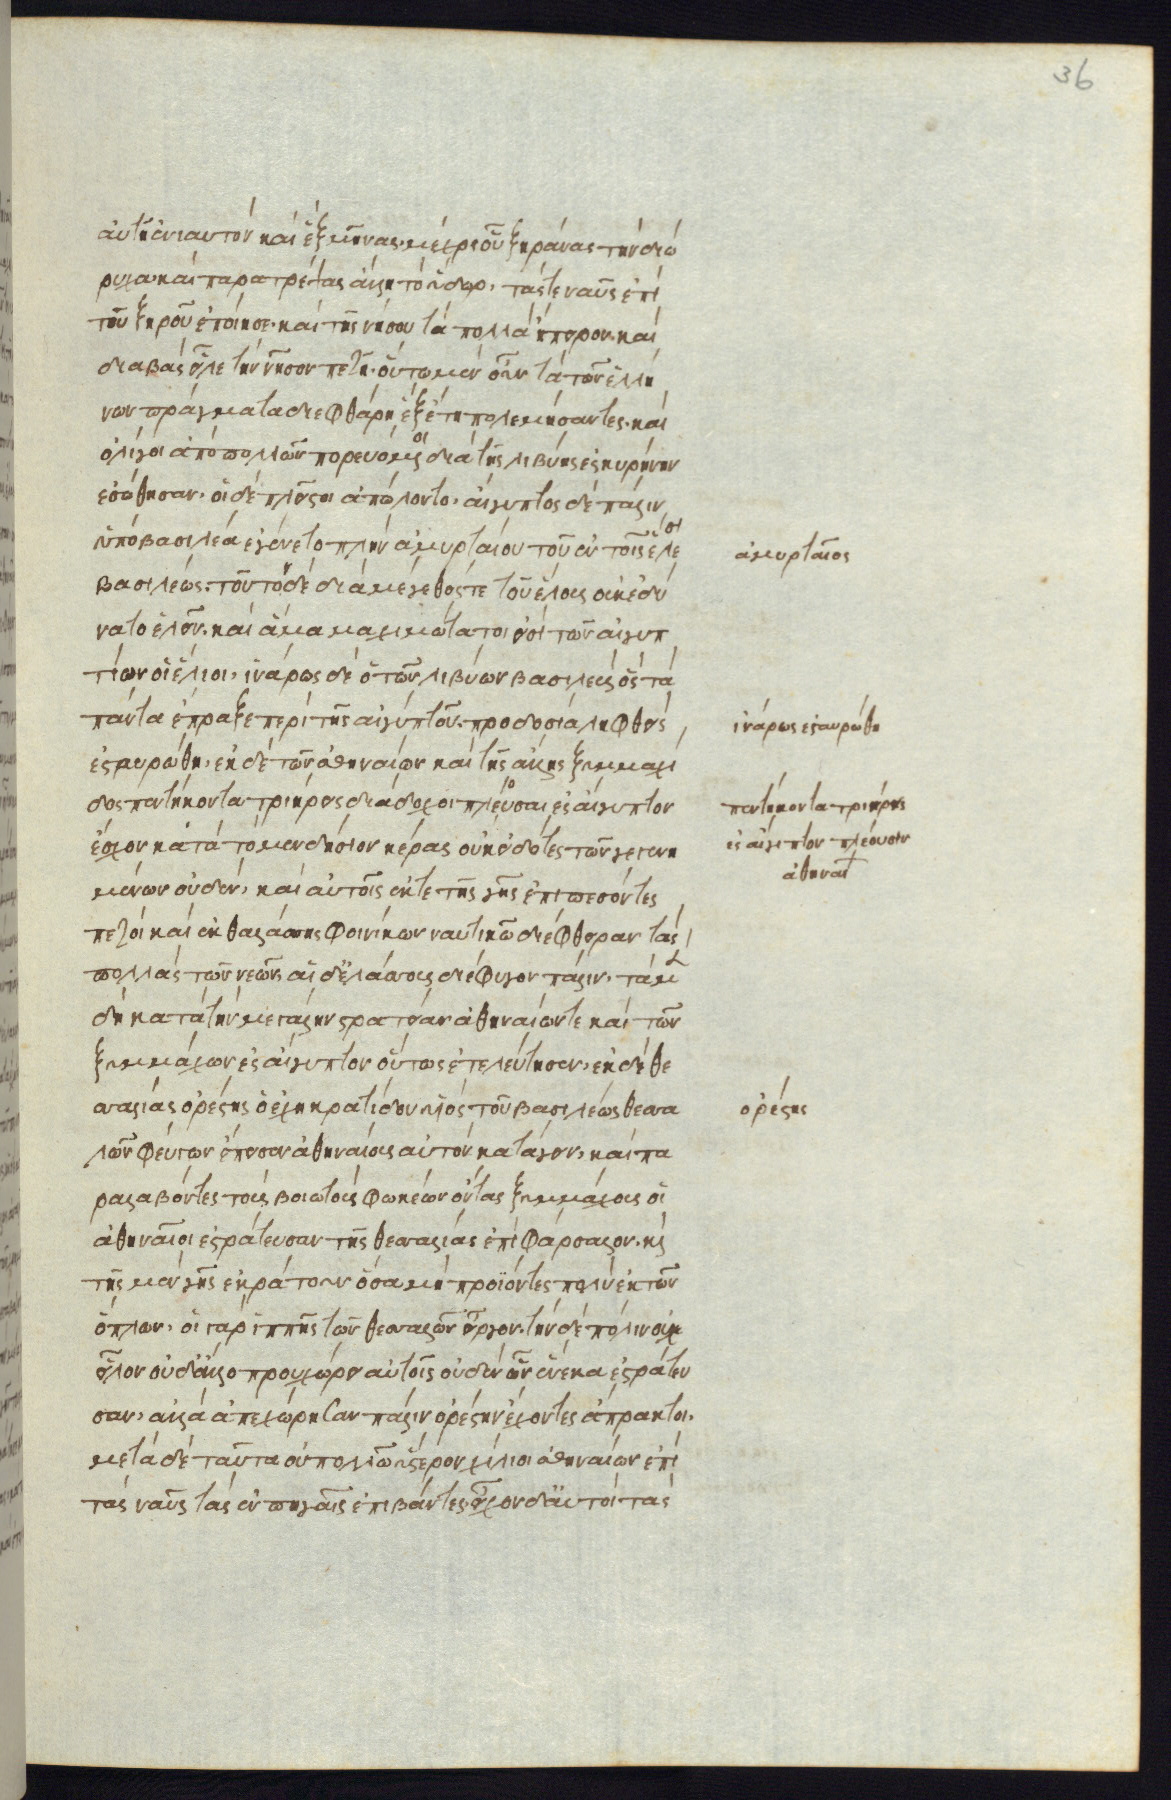 αὐτῇ ἐνιαυτὸν καὶ ἓξ μῆνας. μέχρι οὗ ξηράνας τὴν διώ
ρυχα καὶ παρατρέψας ἄλλῃ τὸ ὕδωρ, τάς τε ναῦς ἐπὶ
τοῦ ξηροῦ ἐποίησε. καὶ τῆς νήσου τὰ πολλὰ ἤπειρον. καὶ
διαβὰς εἷλε τὴν νῆσον πεζῇ. οὕτω μὲν οὖν τὰ τῶν ἑλλή
νων πράγματα διεφθάρη ἓξ ἔτη πολεμήσαντες. καὶ
ὀλίγοι ἀπὸ πολλῶν πορευόμενοι διὰ τῆς λιβύης ἐς κυρήνην
ἐσώθησαν. οἱ δὲ πλεῖστοι ἀπώλοντο. αἴγυπτος δὲ πάλιν
ὑπὸ βασιλέα ἐγένετο πλὴν ἀμυρταίου τοῦ ἐν τοῖς ἕλεσι
ἀμυρταῖος
βασιλέως. τοῦτον δὲ διὰ μέγεθός τε τοῦ ἕλους οὐκ ἐδύ
νατο ἑλεῖν. καὶ ἅμα μαχιμώτατοί εἰσι τῶν αἰγυπ
τίων οἱ ἕλιοι. ἰνάρως δὲ ὁ τῶν λιβύων βασιλεὺς ὃς τὰ
πάντα ἔπραξε περὶ τῆς αἰγύπτου. προδοσίᾳ ληφθεὶς
ἰνάρως ἐσταυρώθη
ἐσταυρώθη. ἐκ δὲ τῶν ἀθηναίων καὶ τῆς ἄλλης ξυμμαχί
δος πεντήκοντα τριήρεις διάδοχοι πλέουσαι ἐς αἴγυπτον
πεντήκοντα τριήρεις
ἐς αἴγυπτον πλέουσιν
ἀθηναί
ἔσχον κατὰ τὸ μενδήσιον κέρας οὐκ εἰδότες τῶν γεγενη
μένων οὐδέν. καὶ αὐτοῖς ἔκ τε τῆς γῆς ἐπιπεσόντες
πεζοὶ καὶ ἐκ θαλάσσης φοινίκων ναυτικὸν διέφθειραν τὰς
πολλὰς τῶν νεῶν. αἱ δ' ἐλάσσους διέφυγον πάλιν. τὰ μὲν
δὴ κατὰ τὴν μεγάλην στρατείαν ἀθηναίων τε καὶ τῶν
ξυμμάχων ἐς αἴγυπτον οὕτως ἐτελεύτησαν. ἐκ δὲ θε
σσαλίας ὀρέστης ὁ ἐχεκρατίδου υἱὸς τοῦ βασιλέως θεσσα
λῶν φεύγων ἔπεισεν ἀθηναίους αὐτὸν κατάγειν. καὶ πα
ὀρέστης
ραλαβόντες τοὺς βοιωτοὺς φωκέων ὄντας ξυμμάχους οἱ
ἀθηναῖοι ἐστράτευσαν τῆς θεσσαλίας ἐπὶ φάρσαλον. καὶ
τῆς μὲν γῆς ἐκράτουν ὅσα μὴ προϊόντες πολὺ ἐκ τῶν
ὅπλων. οἱ γὰρ ἱππῆς τῶν θεσσαλῶν εἶργον. τὴν δὲ πόλιν οὐχ
εἷλον οὐδ' ἄλλο προυχώρει αὐτοῖς οὐδὲν ὧν ἕνεκα ἐστράτευ
σαν. ἀλλὰ ἀπεχώρησαν πάλιν ὀρέστην ἔχοντες ἄπρακτοι.
μετὰ δὲ ταῦτα οὐ πολλῷ ὕστερον χίλιοι ἀθηναίων ἐπὶ
τὰς ναῦς τὰς ἐν πηγαῖς ἐπιβάντες εἶχον δ' αὐτοὶ τὰς
36